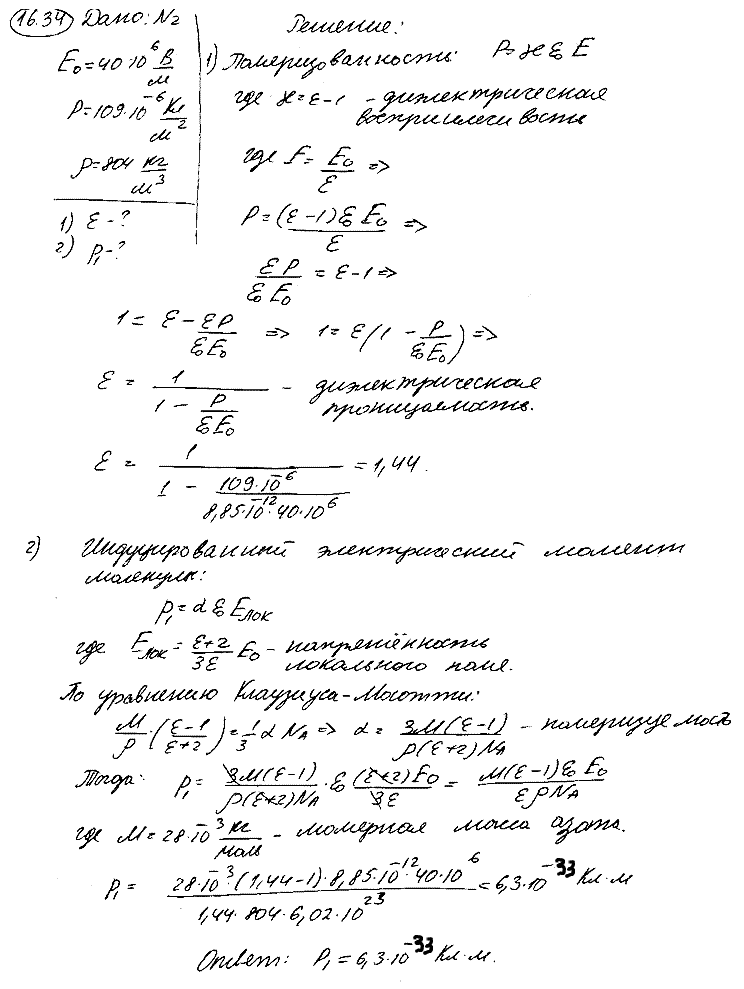 16.34 Дано: N₂
E₀=40·10⁶ В/м
P=109·10⁻⁶ Кл/м²
ρ=804 кг/м³
1) ε-?
2) p₁-?
Решение:
1) Поляризованность: P=ϰε₀E
где ϰ=ε-1 - диэлектрическая
восприимчивость
где E=E₀/ε =>
P=(ε-1)ε₀E₀/ε =>
εP/ε₀E₀ = ε-1 =>
1= ε - εP/ε₀E₀ => 1=ε(1 - P/ε₀E₀) =>
ε = 1/(1 - P/ε₀E₀) - диэлектрическая
проницаемость.
ε = 1/(1 - 109·10⁻⁶/8,85·10⁻¹²·40·10⁶) = 1,44.
2) Индуцированный электрический момент
молекулы:
p₁=αε₀Eлок
где Eлок=(ε+2)/3ε E₀ - напряжённость
локального поля.
По уравнению Клаузиуса-Мосотти:
M/ρ·((ε-1)/(ε+2))=1/3 α N_A => α= 3M(ε-1)/ρ(ε+2)N_A - поляризуемость
Тогда: p₁= 3M(ε-1)/ρ(ε+2)N_A · ε₀ (ε+2)E₀/3ε = M(ε-1)ε₀E₀/ερN_A
где M=28·10⁻³ кг/моль - молярная масса азота.
p₁= 28·10⁻³·(1,44-1)·8,85·10⁻¹²·40·10⁶/1,44·804·6,02·10²³ =6,3·10⁻³³ Кл·м
Ответ: p₁=6,3·10⁻³³ Кл·м.